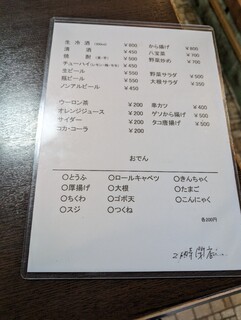 生 冷 酒 (300ml) ¥800
清 酒 ¥450
焼 酎 ¥500
チューハイ ¥450
生ビール ¥550
瓶ビール ¥550
ノンアルビール ¥450
から揚げ ¥600
八宝菜 ¥700
野菜炒め ¥700
野菜サラダ ¥500
大根サラダ ¥350
ウーロン茶 ¥200
オレンジジュース ¥200
サイダー ¥200
コカ・コーラ ¥200
串カツ ¥400
ゲソから揚げ ¥500
タコ唐揚げ ¥500
おでん
〇とうふ 〇ロールキャベツ 〇きんちゃく
〇厚揚げ 〇大根 〇たまご
〇ちくわ 〇ゴボ天 〇こんにゃく
〇スジ 〇つくね
各200円